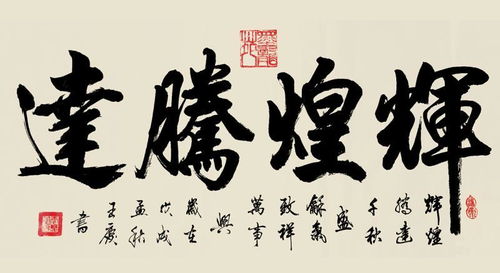 輝煌騰達
輝煌
騰達
千秋
盛
龢氣
致祥
萬事
興
歲在
戊戌
孟秋
王
書